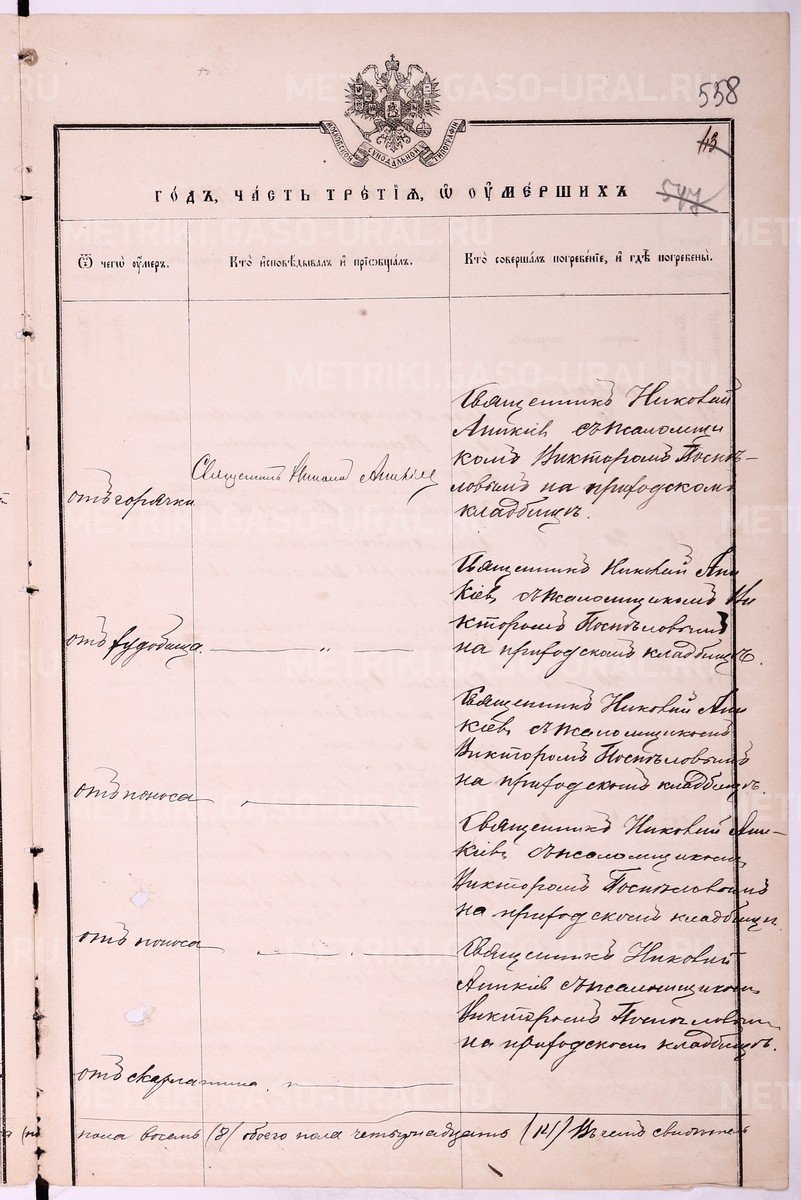 558
МОСКОВСКОЙ СѴНОДАЛЬНОЙ ТИПОГРАФІИ
43
547
ГОДЪ, ЧАСТЬ ТРЕТІЯ, Ѿ ОУМЕРШИХЪ
Ѿ чегѡ оумеръ.
Кто исповѣдывалъ и пріобщалъ.
Кто совершалъ погребеніе, и гдѣ погребены.
отъ горячки
Священникъ Николай Аникіев
Священникъ Николай
Аникіев съ псаломщи
комъ Викторомъ Поспѣ-
ловымъ на приходскомъ
кладбищѣ.
отъ худобища.
— „ —
Священникъ Николай Ани
кіев, съ псаломщикомъ Ви
кторомъ Поспѣловымъ
на приходскомъ кладбищѣ.
отъ поноса
Священникъ Николай Ани
кіев, съ псаломщикомъ
Викторомъ Поспѣловымъ
на приходскомъ кладбищѣ.
отъ поноса
Священникъ Николай Ани-
кіев, съ псаломщикомъ
Викторомъ Поспѣловымъ
на приходскомъ кладбищѣ
отъ скарлатина.
Священникъ Николай
Аникіев съ псаломщикомъ
Викторомъ Поспѣловым
на приходскомъ кладбищѣ.
пола восемь (8) обоего пола четырнадцать (14) Въ чемъ свидѣтель
METRIKI.GASO-URAL.RU